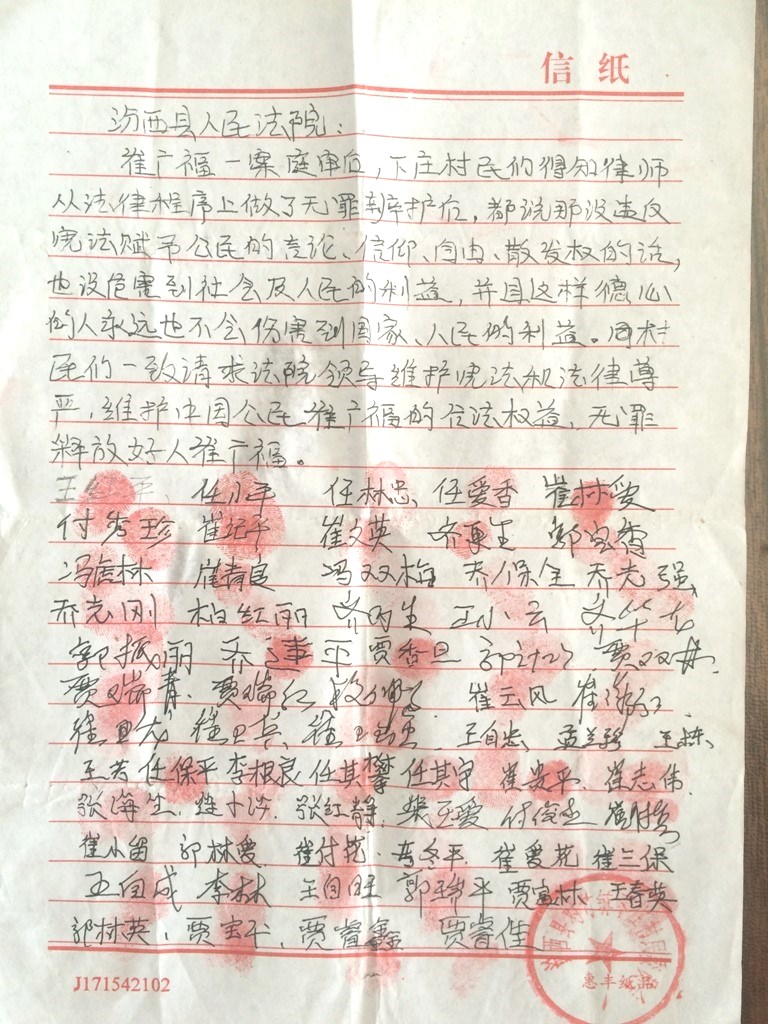 信纸
汾西县人民法院:
崔广福一案庭审后,下庄村民们得知律师
从法律程序上做了无罪辩护后,都说那没违反
宪法赋予公民的言论、信仰、自由、散发权的话,
也没危害到社会及人民的利益,并且这样德心
的人永远也不会伤害到国家、人民的利益。同村
民们一致请求法院领导维护宪法和法律尊
严,维护中国公民崔广福的合法权益,无罪
释放好人崔广福。
任小平 任林忠、任爱香 崔林爱
付秀珍 崔纪平 崔文英 乔更生 郭宝香
冯虎林 崔青良 冯双梅 乔保全 乔志强
乔志刚 柏红丽 乔丙生 王小云 乔华
郭振丽 乔建平 贾香旦 贾双
贾瑞青、贾瑞红 崔云风 崔
崔卫兵、崔卫 王自忠 孟兰珍 王栋
王芳 任保平 李根良 任其攀 任其宇 崔安平、崔志伟
张海生、崔小沙、张红静、柴玉爱 付俊杰 崔
崔小留 郭林爱、崔付花、冬平、崔爱花 崔三保
王自成 李林 王自旺 郭瑞平 贾富林、王春英
郭林英、贾宝平、贾睿鑫 贾睿佳
惠丰纸品
J171542102